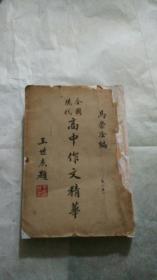 馬崇淦編
全國
現代
高中作文精華
王世杰題